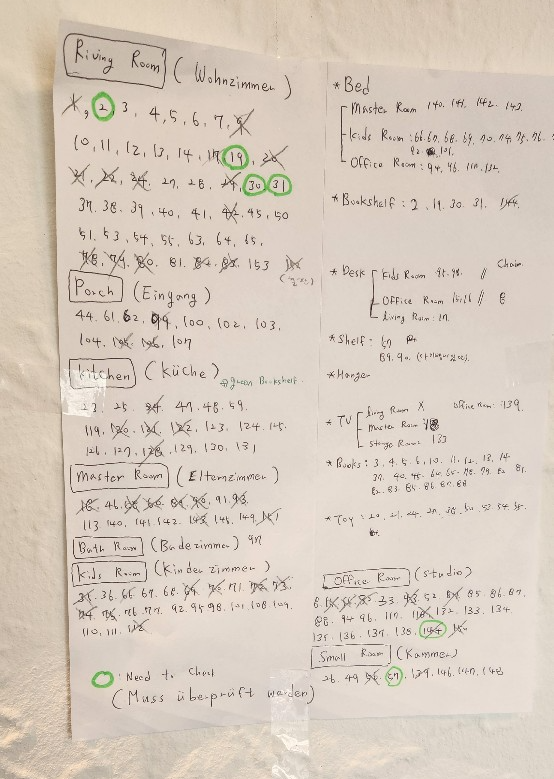 Riving Room (Wohnzimmer)
1, 2, 3, 4, 5, 6, 7,
10, 11, 12, 13, 14, 19,
27, 28, 30 31
37. 38. 39. 40. 41. 42. 45. 50
51. 53. 54. 55. 63. 64. 65.
78. 79. 80. 81. 82. 83. 153
Porch (Eingang)
44. 61. 62. 100. 102. 103.
104. 107
kitchen (Küche) green Bookshelf
25. 47. 48. 59.
119. 120. 122. 123. 124. 125.
126. 127. 128. 129. 130. 131
Master Room (Elternzimmer)
46. 91. 93.
113. 140. 141. 142. 143. 145. 149.
Bath Room (Badezimmer) 97
kids Room (Kinderzimmer)
36. 66. 67. 68. 71.
76. 77. 92. 95. 98. 101. 108. 109.
110. 111. 112
: Need to Check
(Muss überprüft werden)
* Bed
Master Room 140. 141. 142. 143
kids Room : 66. 67. 68. 69. 70. 74. 75. 76.
92. 101.
Office Room : 94. 96. 117. 132
* Bookshelf : 2. 19. 30. 31. 144
* Desk kids Room 95. 98. // Chair
Office Room 15. 16 // 8
Living Room : 17.
* Shelf : 57
89. 90.
* Hanger
* TV Living Room X Office Room 139
Master Room
Storage Room 133
* Books : 3. 4. 5. 6. 10. 11. 12. 13. 14
37. 40. 45. 64. 65. 78. 79. 82. 81.
82. 83. 85. 86. 87. 88
* Toy : 20. 21. 24. 28. 38. 50. 53. 54. 55.
Office Room (Studio)
8. 33. 52. 85. 86. 87.
88. 94. 96. 117. 132. 133. 134
135. 136. 137. 138. 144
Small Room (Kammer)
26. 49. 57. 139. 146. 147. 148